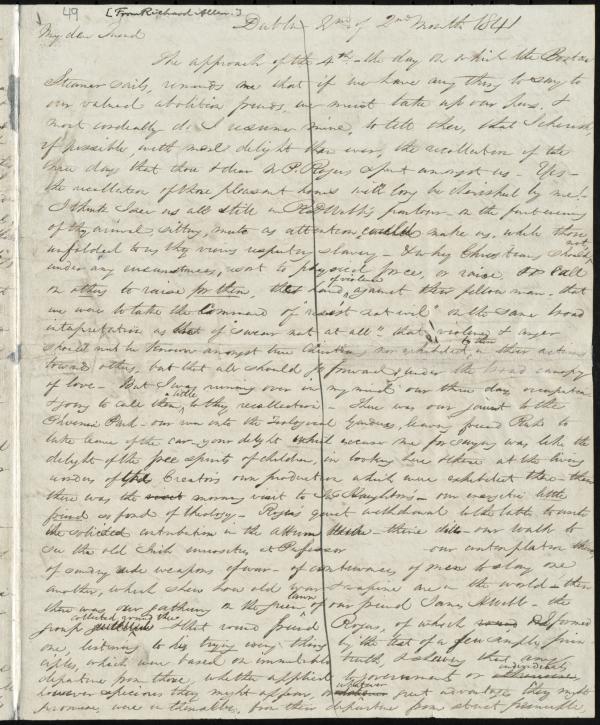 49 [From Richard Allen.]
Dublin 2nd of 2nd Month 1841
My dear friend
The approach of the 4th – the day on which the Boston
Steamer sails, reminds me that if we have any thing to say to
our valued abolition friends, we must take up our pens, &
most cordially do I resume mine, to tell thee, that I cherish,
if possible, with more delight than ever, the recollection of the
three days that thou & dear N P. Rogers spent amongst us – Yes –
the recollection of those pleasant hours will long be cherished by me –
I think I see us all still in Rd Webb's parlour – on the first evening
of thy arrival sitting, mute as attention could make us, while thou
unfolded to us thy views respecting slavery – & why Christians should not
under any circumstances, resort to physical force, or raise, or call
on others to raise for them the hand of violence against their fellow man – that
we were to take the command of "resist not evil" on the same broad
interpretation as that of "swear not at all" – that violence & anger
should not be known amongst true Christians nor exhibited in their actions
toward others, but that all should go forward under the broad canopy
of love – But I was running over in my mind our three days occupation
& going to call them a little to thy recollection – There was our jaunt to the
Phoenix Park – our run into the Zoological Gardens, leaving friend to
take leave of the car – your delight excuse me for saying was like the
delight of the free spirits of children, in looking here & there at the living
wonders of the Creators own production which were exhibited there – then
there was the morning visit to Haughton's – our energetic little
friend so fond of theology – Rogers quiet withdrawal to the table to write
the solicited contribution in the album – our walk to
see the old Irish curiosities at Professor our contemplation there
of sundry rude weapons of war – of contrivances of men to slay one
another, which shew how old war & rapine are in the world – then
there was our gathering on the green lawn of our friend James H Webb – the
group collected round the that round friend Rogers, of which formed
one, listening to his trying every thing by the test of a few simple prin
ciples, which were based on immutable truth, & shewing that any
departure from these, whether applied to government or individually
however specious they might appear, or whatever great advantages they might
promise, were untenable, from their departure from strict principle,